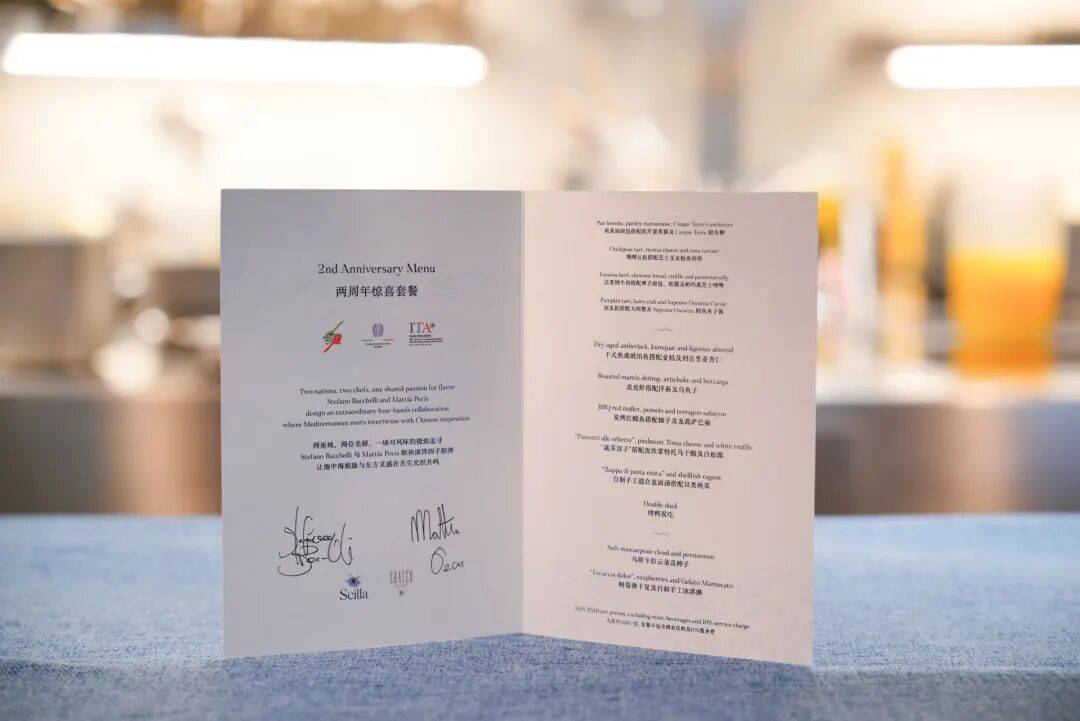 2nd Anniversary Menu
两周年惊喜套餐
ITA
Two nations, two chefs, one shared passion for flavor
Stefano Bacchelli and Mattia Pecis
design an extraordinary four-hands collaboration
where Mediterranean roots intertwine with Chinese inspiration
两座城、两位名厨、一场对风味的极致追寻
Stefano Bacchelli 与 Mattia Pecis 联袂演绎四手联弹
让地中海根脉与东方灵感在舌尖交织共鸣
Mattia
Pecis
Scilla
CRACCO
Pan brioche, parsley mayonnaise, Cinque Terre's anchovies
Cinque Terre 银鱼柳
Chickpeas tart, ricotta cheese and tuna tartare
鹰嘴豆挞搭配芝士及金枪鱼塔塔
Fassona beef, chestnut bread, truffle and parmesan jelly
法索纳牛肉搭配栗子面包、松露及帕玛森芝士啫喱
Pumpkin tart, hairy crab and Superior Oscietra Caviar
南瓜挞搭配大闸蟹及 Superior Oscietra 鲟鱼鱼子酱
Dry aged amberjack, kumquat and ligurian almond
干式熟成琥珀鱼搭配金桔及利古里亚杏仁
Roasted mantis shrimp, artichoke and bottarga
皮皮虾搭配洋蓟及乌鱼子
BBQ red mullet, pomelo and terragon sabayon
炭烤红鲻鱼搭配柚子及龙蒿萨巴雍
"Pansotti alle erbette", piedmont Toma cheese and white truffle
"蔬菜饺子"搭配皮埃蒙特托马干酪及白松露
"Zuppa di pasta mista" and shellfish ragout
自制手工混合意面汤搭配贝类炖菜
Double duck
烤鸭双吃
Soft mascarpone cloud and persimmon
马斯卡彭云朵及柿子
"Focaccia dolce", raspberries and Gelato Mantecato
树莓佛卡夏及自制手工冰淇淋
RMB per person, excluding wine, beverages and 10% service charge
套餐不包含酒水饮料及10%服务费